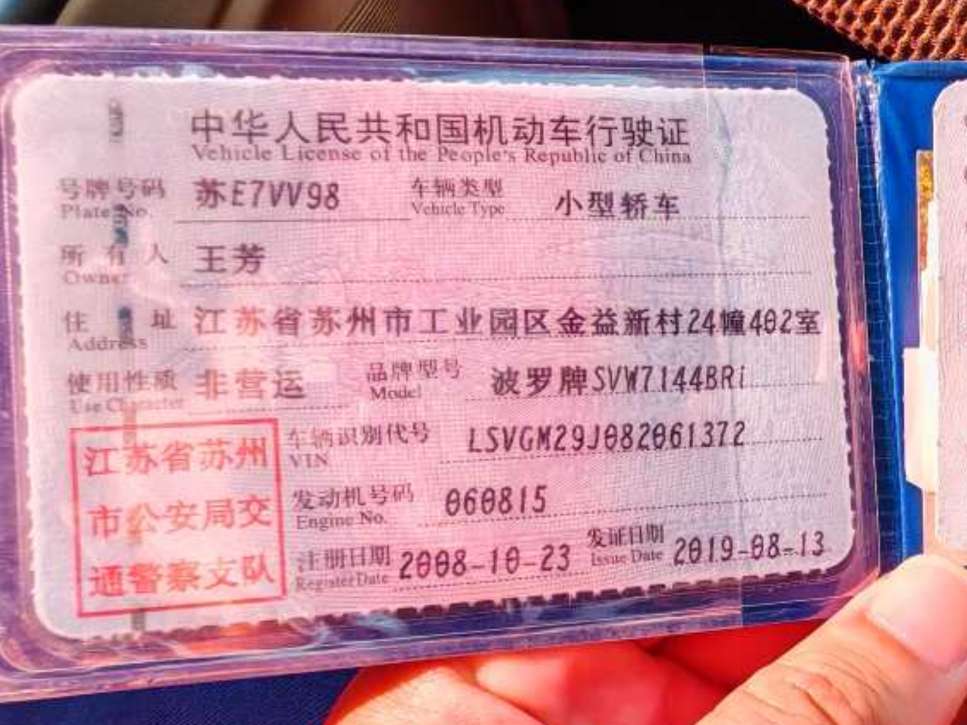 中华人民共和国机动车行驶证
Vehicle License of the People's Republic of China
号牌号码 苏E7VV98 车辆类型 小型轿车
Plate No. Vehicle Type
所有人 王芳
Owner
住址 江苏省苏州市工业园区金益新村24幢402室
Address
使用性质 非营运 品牌型号 波罗牌SVW7144BRi
Use Character Model
车辆识别代号 LSVGM29J082061372
VIN
发动机号码 060815
Engine No.
注册日期 2008-10-23 发证日期 2019-08-13
Register Date Issue Date
江苏省苏州
市公安局交
通警察支队